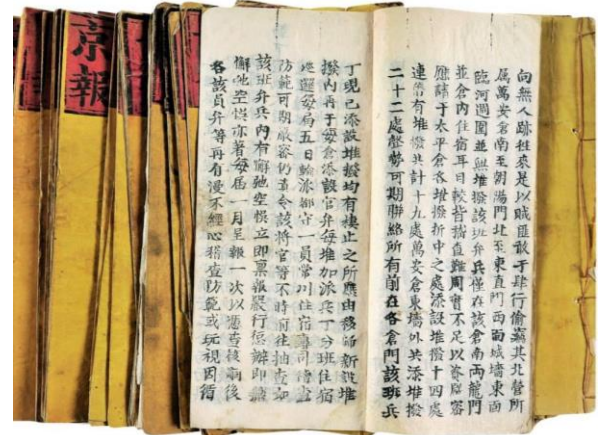 向無人跡往來是以賊匪敢于肆行偷竊其北營所
屬萬安倉南至朝陽門北至東直門兩面城墻東面
臨河週圍並無堆撥該班弁兵僅在該倉南兩龍門
並倉內住宿耳目較皆稽查難周實不足以資嚴密
應請于太平倉各堆撥折中之處添設堆撥十四處
連舊有堆撥共計十九處萬安倉東墻外共添堆撥
二十二處聲勢可期聯絡所有前在各倉門該班兵
丁現已添設堆撥均有棲止之所應由移師新設堆
撥內再于每倉添設官弁每堆加派兵丁分班住宿
巡邏每局五日輪派都守一員常川住宿專司稽查
防範可期嚴密仍責令該將官等不時前往抽查如
該班弁兵內有懈弛空悞立即稟報嚴行懲辦即該
懈弛空悞亦著每屆一月呈報一次以憑查核嗣後
各該員弁等再有漫不經心稽查防範或玩視因循
京報